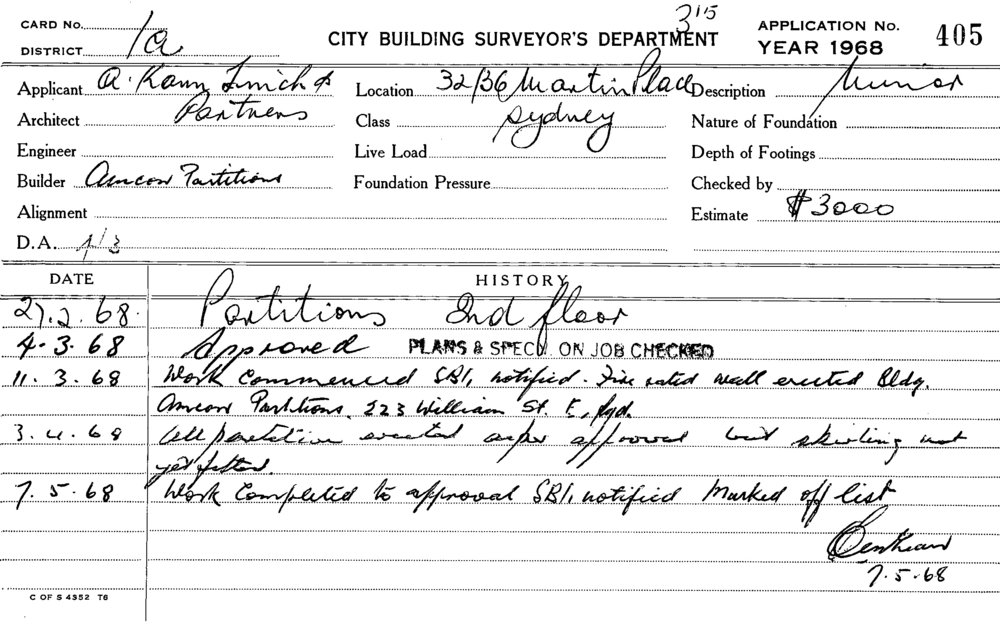 CARD No.
DISTRICT 1a
CITY BUILDING SURVEYOR'S DEPARTMENT
315
APPLICATION No. 405
YEAR 1968
Applicant A. Kann Finch &
Architect Partners
Engineer
Builder Amcon Partitions
Alignment
D.A. 1/3
Location 32/36 Martin Place
Class Sydney
Live Load
Foundation Pressure
Description Minor
Nature of Foundation
Depth of Footings
Checked by
Estimate $3000
DATE HISTORY
27.2.68. Partitions 2nd floor
4.3.68 Approved PLANS & SPECN. ON JOB CHECKED
11.3.68 Work Commenced SBI, notified. Fire rated wall erected Bldg.
Amcon Partitions. 223 William St. E. Syd.
3.4.68 All partition erected as per approval but skirting not
yet fitted.
7.5.68 Work Completed to approval SBI, notified Marked off list
7.5.68
C OF S 4352 T6